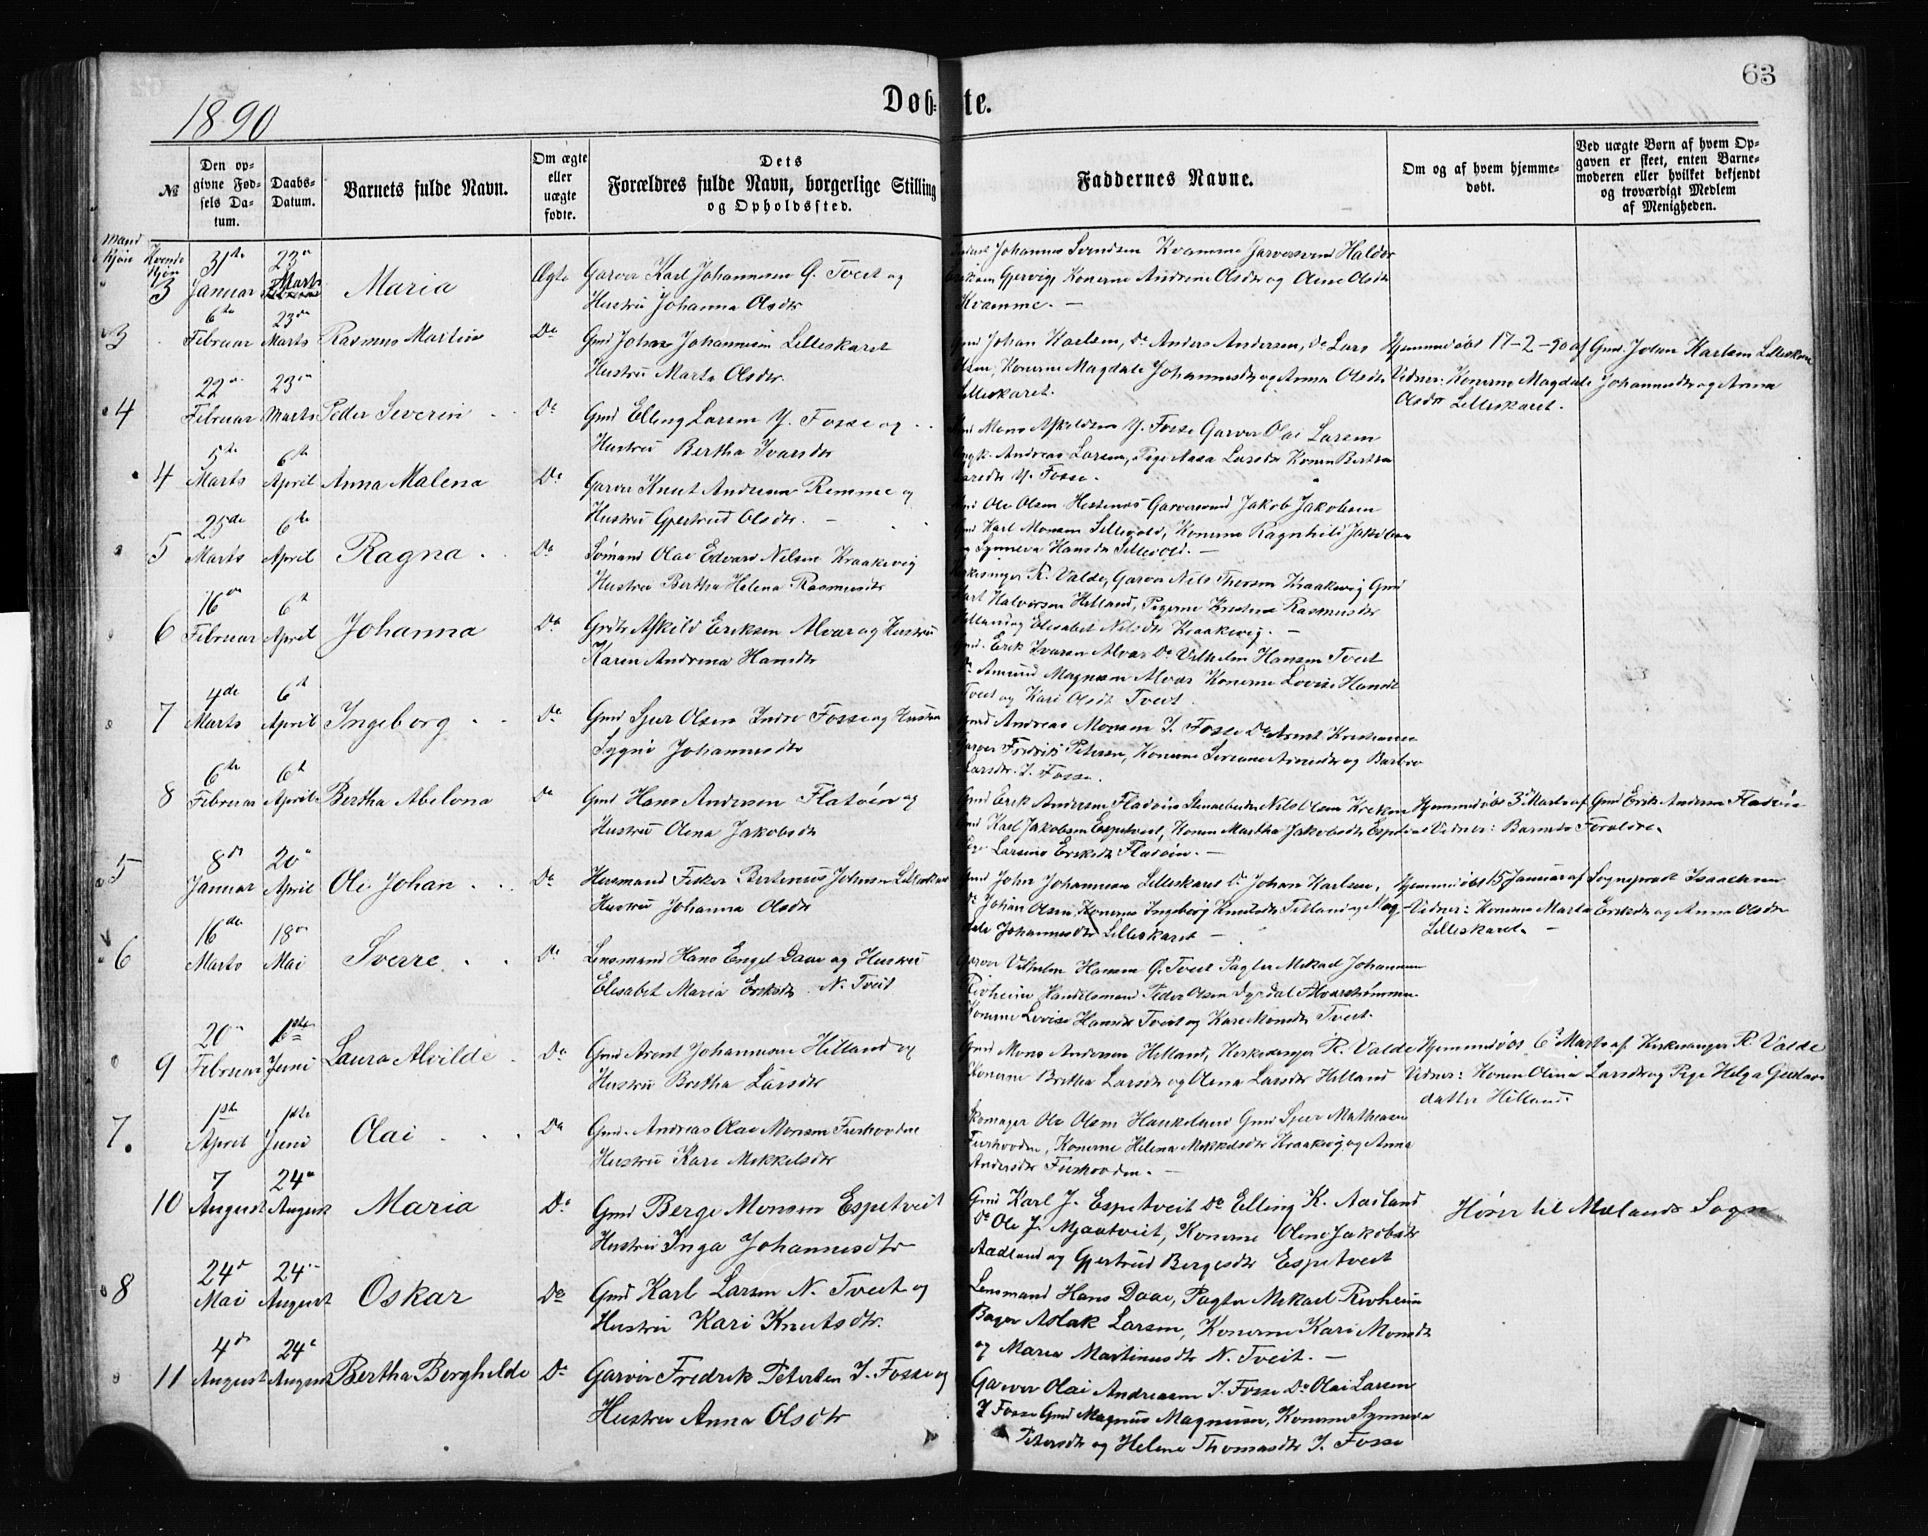 63
1890
Døbte.
№
Den opgivne Fødsels Datum.
Daabs-Datum.
Barnets fulde Navn.
Om ægte eller uægte fødte.
Dets Forældres fulde Navn, borgerlige Stilling og Opholdssted.
Faddernes Navne.
Om og af hvem hjemmedøbt.
Ved uægte Børn af hvem Opgaven er skeet, enten Barnemoderen eller hvilket bekjendt og troværdigt Medlem af Menigheden.
Mand Kjøn
Kvinde Kjøn
3 31te Januar 23de Marts Maria Ægte Garver Karl Johannesen G. Tveit og
Hustru Johanna Olsdtr
Johannes Svendsen Kvamme Garversvend Haldor
Gjervig, Konerne Andrine Olsdtr og Olene Olsdtr
Kvamme. —
3 6te Februar 23de Marts Rasmus Martin Do Gmd Johan Johannesen Lilleskaret
Hustru Marta Olsdtr.
Gmd Johan Karlsen, Do Anders Andersen, Do Lars
Olsen, Konerne Magdale Johannesdtr og Anna Olsdtr
Lilleskaret.
Hjemmedøbt 17-2-90 af Gmd. Johan Karlsen Lilleskare
Vidner: Konerne Magdale Johannesdtr og Anna
Olsdtr Lilleskaret.
4 22de Februar 23de Marts Peder Severin Do Gmd Elling Larsen Y. Fosse og
Hustru Bertha Ivarsdtr
Gmd Mons Askeldsen Y. Fosse Garver Olai Larsen
Ungk. Andreas Larsen, Pige Aasa Larsdtr Konen Bertha
Larsdtr Y. Fosse.
4 5te Marts 6te April Anna Malena Do Garver Knut Andersen Remme og
Hustru Gjertrud Olsdtr.
Gmd Ole Olsen Hestenes Garversvend Jakob Jakobsen
Gmd Karl Monsen Sellevold, Konerne Ragnhild Jakobsen
og Synneva Hansdtr Sellevold. —
5 25de Marts 6te April Ragna Do Sømand Olai Edvard Nilsen Kraakevig
Hustru Bertha Helena Rasmusdtr
Kirkesanger R. Valde, Garver Nils Thersen Kraakevig Gmd
Karl Halversen Hilland, Pigerne Kristine Rasmusdtr
Hilland og Elisabet Nilsdtr Kraakevig. —
6 16de Februar 6te April Johanna Do Grdbr Askild Eriksen Alvær og Hustru
Karen Andrina Hansdtr
Gmd. Erik Ivarsen Alvær Do Vilhelm Hansen Tveit
Do Amund Magnesen Alvær Konerne Lovise Hansdtr
Tveit og Kari Olsdtr Tveit.
7 4de Marts 6te April Ingeborg Do Gmd Sjur Olsen Indre Fosse og Hustru
Sygni Johannesdtr
Gmd Andreas Monsen I. Fosse Do Arent Kristiansen
Garver Fredrik Petersen, Konerne Seriane Arnesdtr og Barbro
Larsdtr. I. Fosse.
8 6te Februar 6te April Bertha Abelona Do Gmd Hans Andersen Flatøen og
Hustru Olena Jakobsdtr
Gmd Erik Andersen Fladøen Nils Olsen
Gmd Karl Jakobsen Espetveit, Konen Martha Jakobsdtr Espetveit
Pige Larsine Eriksdtr Fladøen. —
Hjemmedøbt 3 Marts af Gmd Erik Andersen Fladøen
Vidner: Barnets Forældre.
5 8de Januar 20de April Ole Johan Do Husmand Fisker Bertinius Johnsen Lilleskaret
Hustru Johanna Olsdtr
Gmd John Johannesen Lilleskaret Do Johan Karlsen,
Do Johan Olsen, Konerne Ingeborg Knutsdtr Titland og Magdale Johannesdtr Lilleskaret —
Hjemmedøbt 15 Januar af Sogneprest Isaachsen
Vidner: Konerne Marta Eriksdtr og Anna Olsdtr
Lilleskaret. —
6 16de Marts 18de Mai Sverre Do Lensmand Hans Engel Daae og Hustru
Elisabet Maria Eriksdtr N. Tveit
Garver Vilhelm Hansen G. Tveit Pagter Mikael Johannesen
Rivheim Handelsmand Peder Olsen Dyrdal Alverstrømmen
Konerne Lovise Hansdtr Tveit og Kari Monsdtr Tveit.
9 20de Februar 1ste Juni Laura Alvilde Do Gmd Arent Johannesen Hilland og
Hustru Brettha Larsdtr
Gmd Mons Andersen Hilland, Kirkesanger R. Valde
Konerne Britha Larsdtr og Olena Larsdtr Hilland
Hjemmedøbt 6te Marts af Kirkesanger R. Valde
Vidner: Konen Olina Larsdtr og Pige Helga Gustavsdatter Hilland.
7. 1ste April 1ste Juni Olai Do Gmd. Andreas Olai Monsen Furhovden
Hustru Kari Mikkelsdtr
Skomager Ole Olsen Haukeland Gmd Sjur Mathiasen
Furhovden, Konerne Helena Mikkelsdtr Kraakevig og Anna
Andersdtr Furhovden. —
10 7 August 24de August Maria Do Gmd Berge Monsen Espetveit
Hustru Inga Johannesdtr
Gmd Karl J. Espetveit Do Elling K. Aasland
Do Ole J. Mjaatveit, Konerne Oline Jakobsdtr
Aadland og Gjertrud Bergesdtr Espetveit
Hører til Mælands Sogn
8 24de Mai 24de August Oskar Do Gmd Karl Larsen N. Tveit og
Hustru Kari Knutsdtr.
Lensmand Hans Daae, Pagter Mikael Rivheim
Bager Aslak Larsen, Konerne Kari Monsdtr
og Maria Martinusdtr N. Tveit. —
11 4de August 24de August Bertha Borghilde Do Garver Fredrik Petersen I. Fosse og
Hustru Anna Olsdtr
Garver Olai Andreasen I. Fosse Do Olai Larsen
Y Fosse Gmd Magnus Magnusen, Konerne Synneva
Petersdtr og Helene Thomasdtr I. Fosse